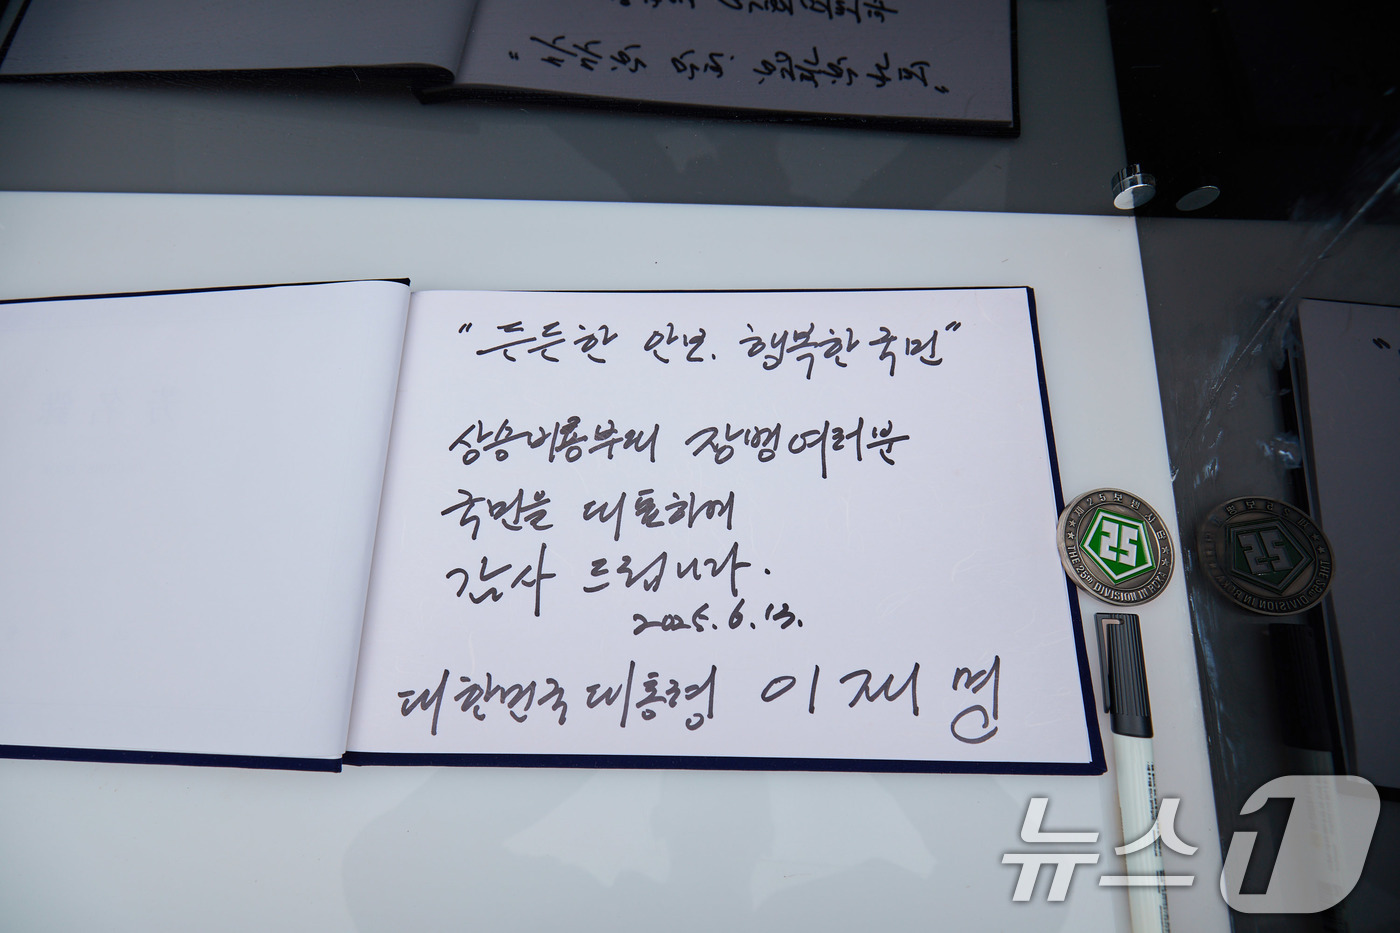 "든든한 안보. 행복한 국민"
상승비룡부대 장병여러분
국민을 대표하여
감사 드립니다.
2025. 6. 13.
대한민국 대통령 이재명
제25보병사단
THE 25th DIVISION IN ROKA
25
뉴스1